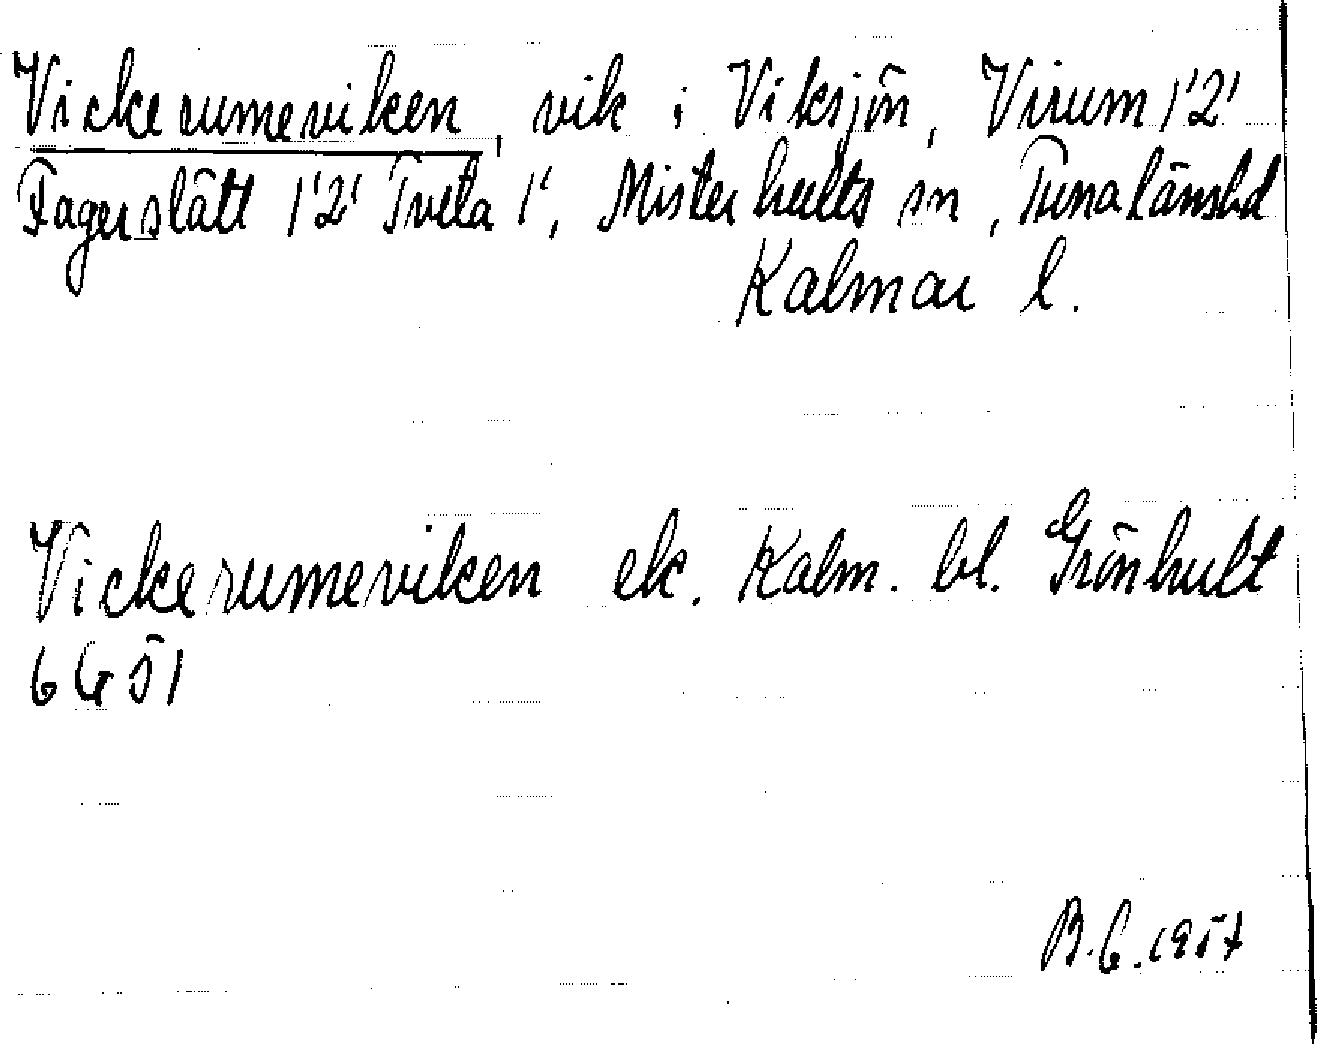 Vickerumeviken, vik i Viksjön, Virum 1'2'
Fagerslätt 1'2' Tveta 1', Misterhults sn, Tunalänsbd
Kalmar l.
Vickerumeviken ek. Kalm. bl. Grönhult
6G51
B.G. 1957